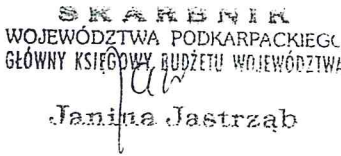 SKARBNIK
WOJEWÓDZTWA PODKARPACKIEGO
GŁÓWNY KSIĘGOWY BUDŻETU WOJEWÓDZTWA
Janina Jastrząb